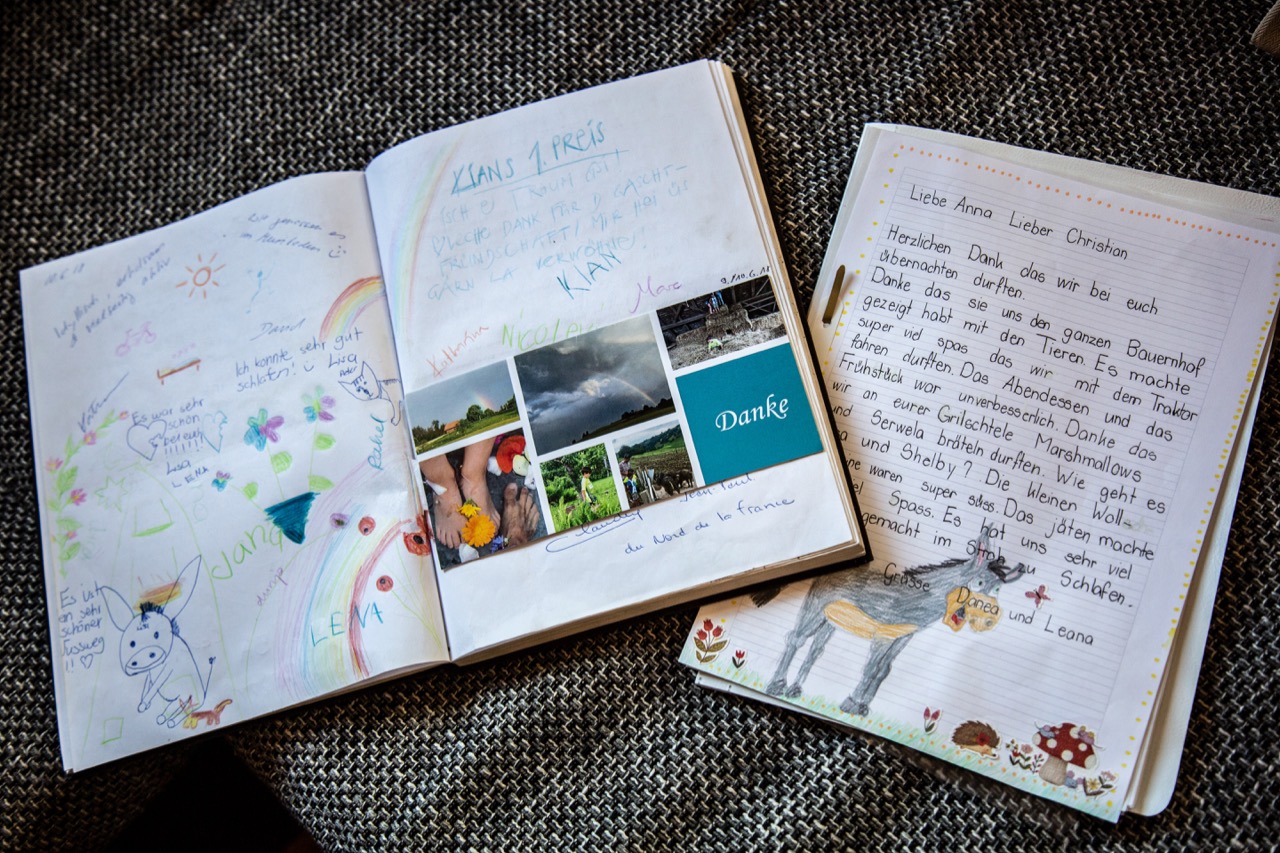 10.6.18
Ich konnte sehr gut
schlafen! Lisa
David
Es war sehr
schön
bei euch
!!!!!
Lisa
LENA
Rahel
Jana
LENA
Es ist
ein sehr
schöner
!! ♡
KIANS 1. PREIS
ISCH EN TRAUM GSI!
VILICHE DANK FÜR D GASCHT-
FREUNDSCHAFT! MIR HEI ÜS
GÄRN LA VERWÖHNE!
KIAN
Marc
Nicole
9./10.6.18
Danke
Claudy Jean-Paul
du Nord de la France
Liebe Anna Lieber Christian
Herzlichen Dank das wir bei euch
übernachten durften.
Danke das sie uns den ganzen Bauernhof
gezeigt habt mit den Tieren. Es machte
super viel spas das wir mit dem Traktor
fahren durften. Das Abendessen und das
Frühstück war unverbesserlich. Danke das
wir an eurer Grilschtele Marshmallows
und Serwela bräteln durften. Wie geht es
und Shelby? Die kleinen Woll-
waren super süss. Das jäten machte
Spass. Es hat uns sehr viel
gemacht im Stroh zu Schlafen.
Grösse Danea und Leana